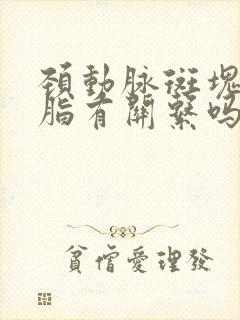 頚動脉斑塊
脂有關繫吗
貧僧愛理發